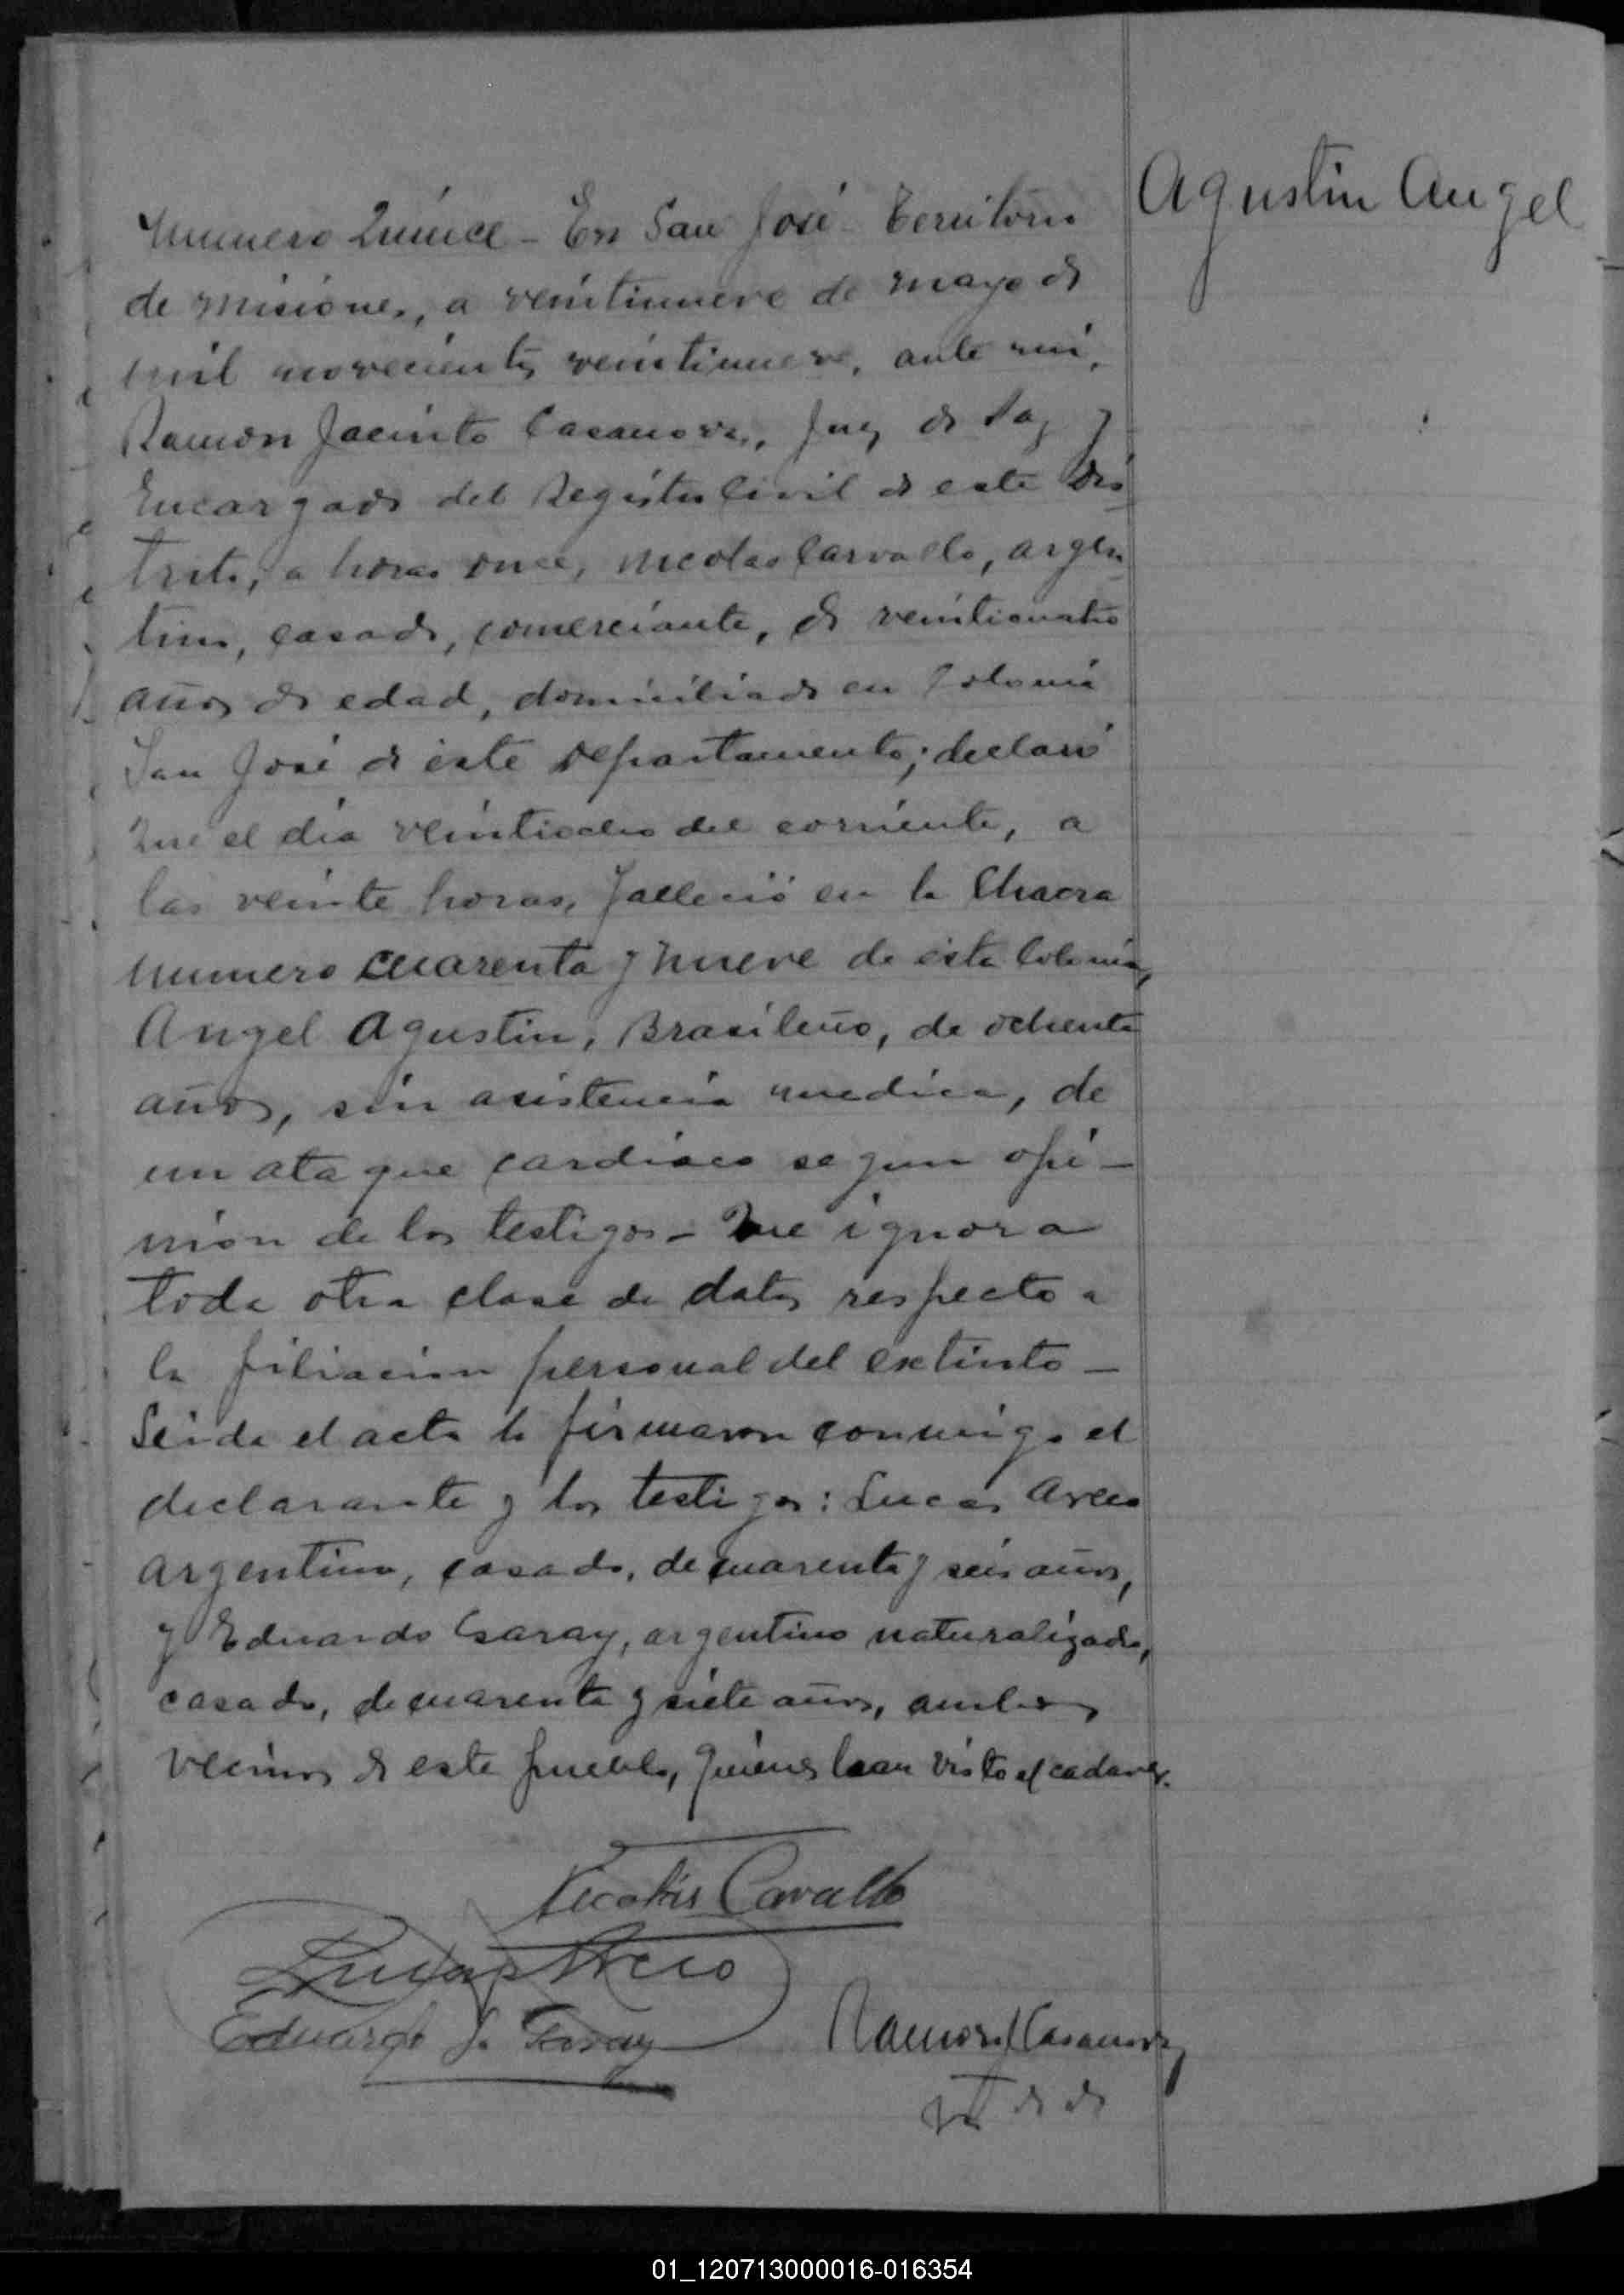 Agustin Angel
Numero Quince - En San José - Territorio
de Misiones, a veintinueve de mayo de
mil novecientos veintinueve, ante mi,
Ramon Jacinto Casanova, Juez de Paz y
Encargado del Registro Civil de este dis
trito, a horas once, Nicolas Carvallo, argen
tino, casado, comerciante, de veinticuatro
años de edad, domiciliado en Colonia
San José de este Departamento; declaró
Que el dia veintiocho del corriente, a
las veinte horas, falleció en la Chacra
numero cuarenta y nueve de esta Colonia,
Angel Agustin, Brasileño, de ochenta
años, sin asistencia medica, de
un ataque cardiaco segun opi-
nion de los testigos - Que ignora
toda otra clase de datos respecto a
la filiacion personal del extinto -
Leida el acta la firmaron conmigo el
declarante y los testigos: Lucas Areco
argentino, casado, de cuarenta y seis años,
y Eduardo Garay, argentino naturalizado,
casado, de cuarenta y siete años, ambos
vecinos de este pueblo, quienes han visto el cadaver.
Nicolás Cavallo
Lucas Areco
Eduardo J. Garay
Ramon J Casanova
01_120713000016-016354